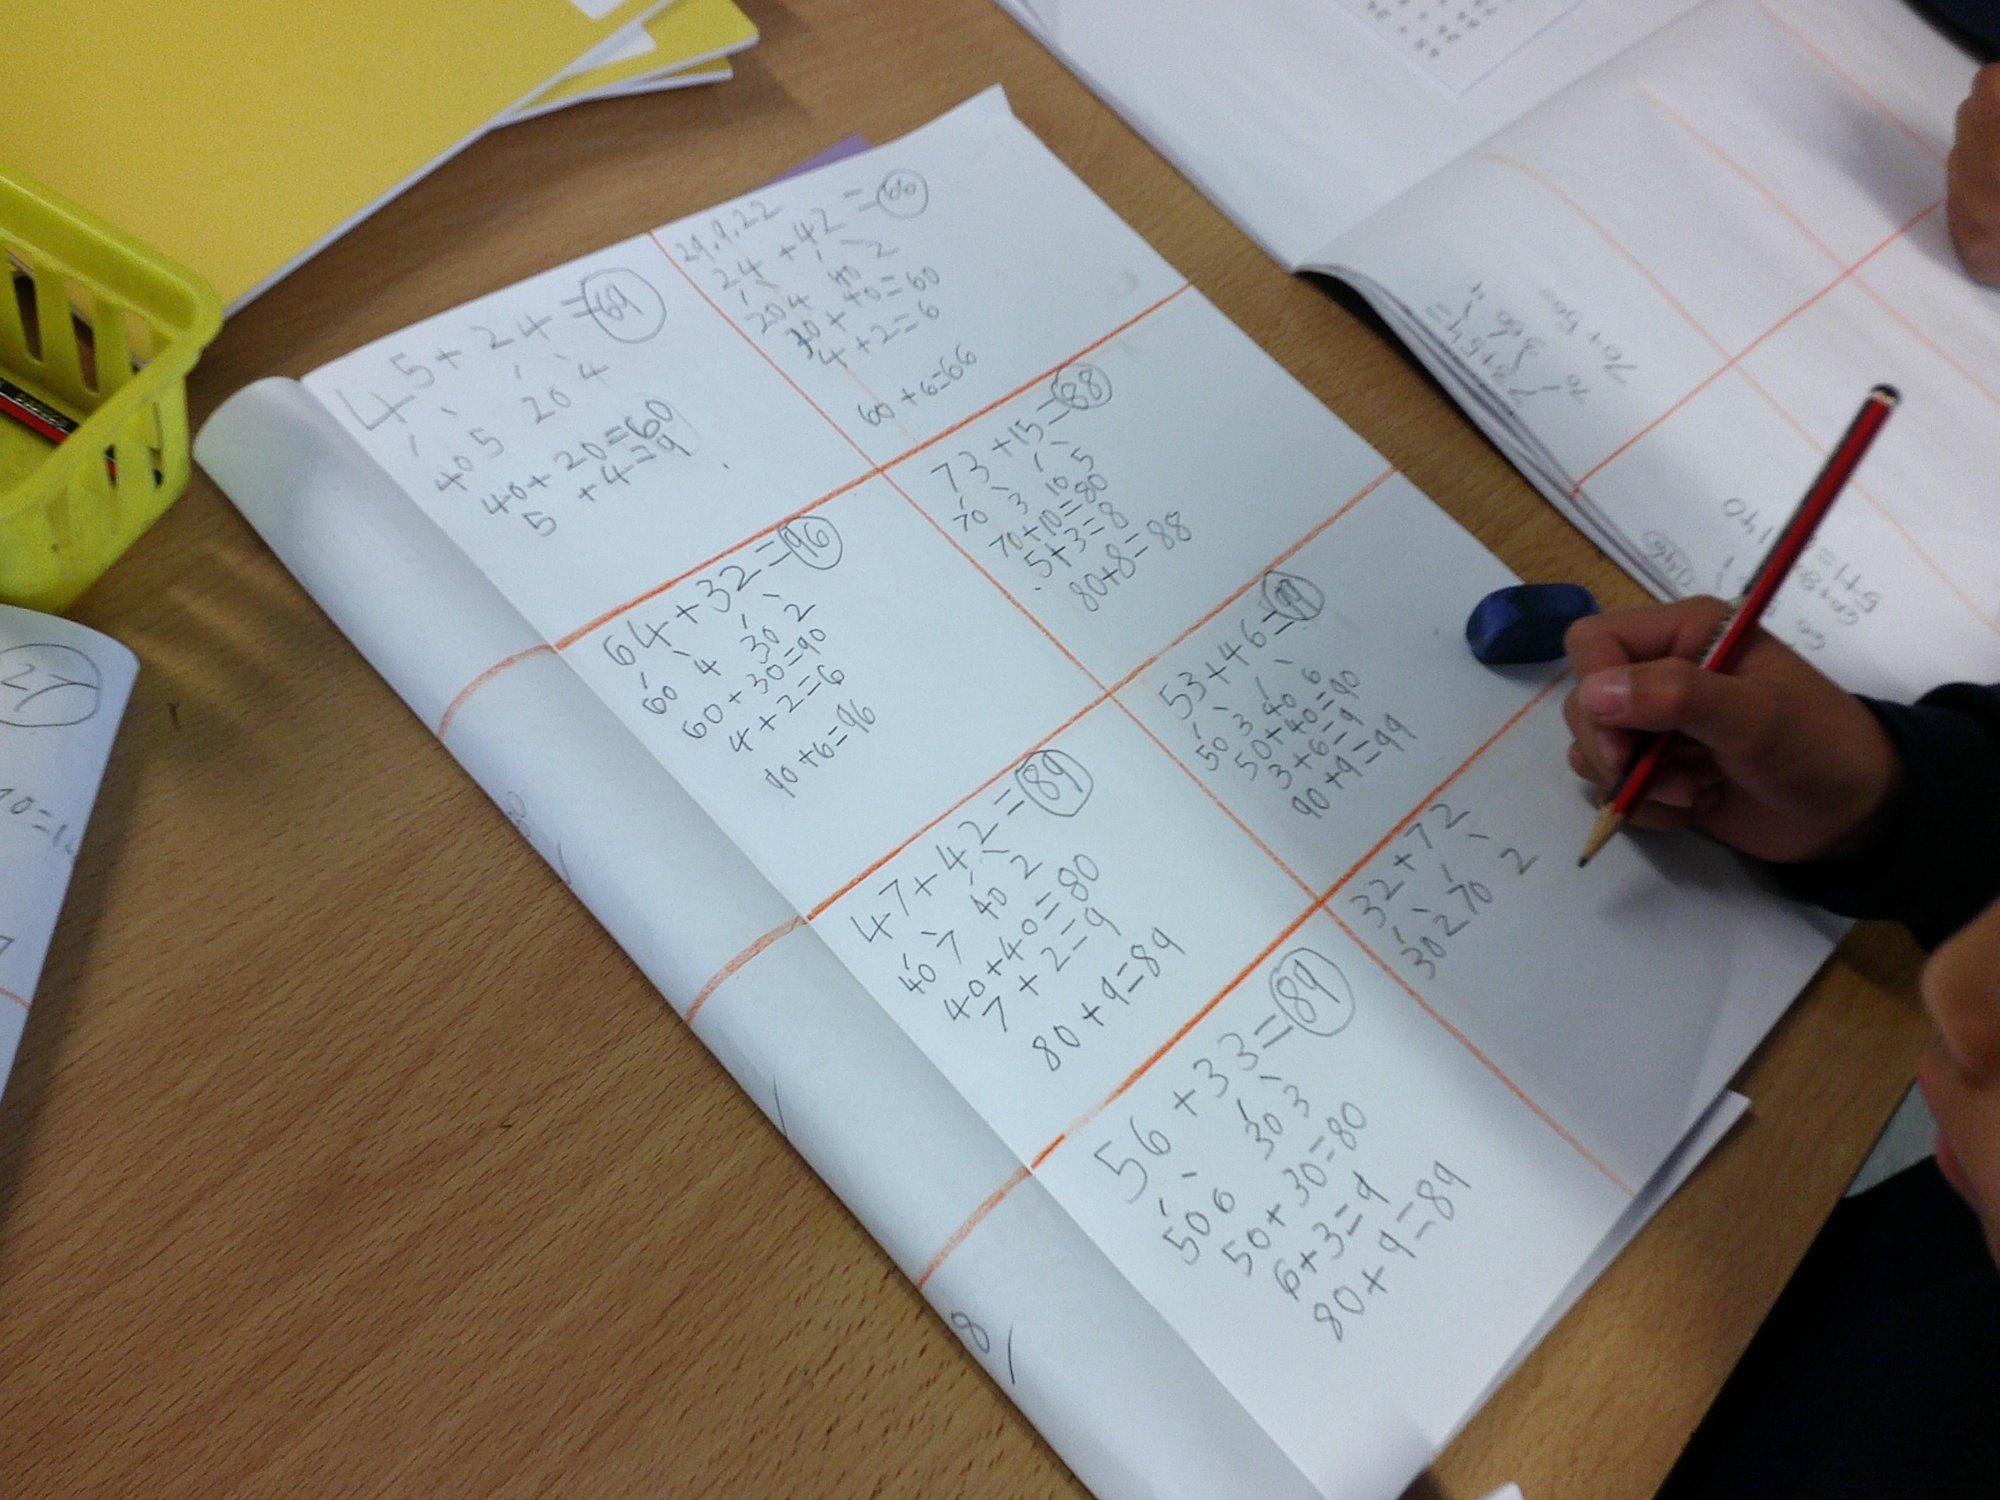 45+24=69
40 5 20 4
40+20=60
5+4=9
29.9.22
24+42=66
20 4 40 2
20+40=60
4+2=6
60+6=66
64+32=96
60 4 30 2
60+30=90
4+2=6
90+6=96
73+15=88
70 3 10 5
70+10=80
5+3=8
80+8=88
47+42=89
40 7 40 2
40+40=80
7+2=9
80+9=89
53+46=99
50 3 40 6
50+40=90
3+6=9
90+9=99
56+33=89
50 6 30 3
50+30=80
6+3=9
80+9=89
32+72
30 2 70 2
8
27
70+50
5+1=
140
146